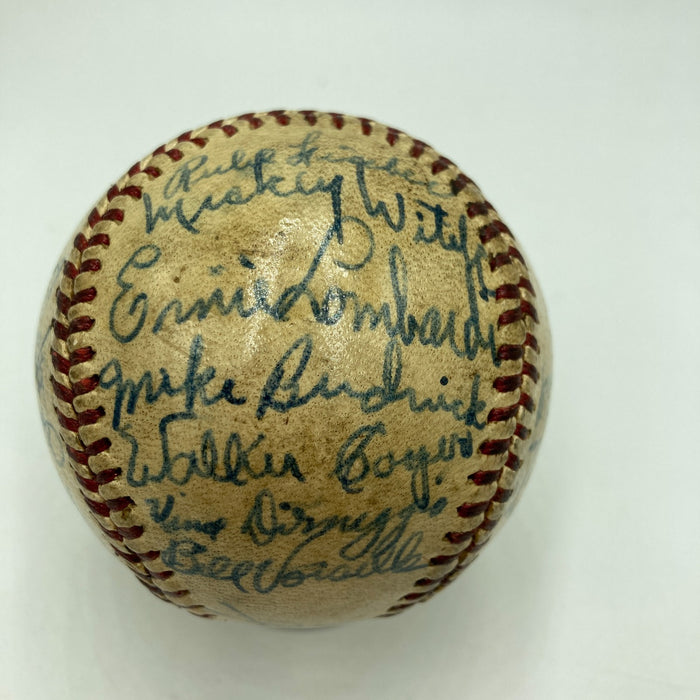 Mickey Witek
Ernie Lombardi
Mike Budnick
Walker Cooper
Vince Dimaggio
Bill Voiselle